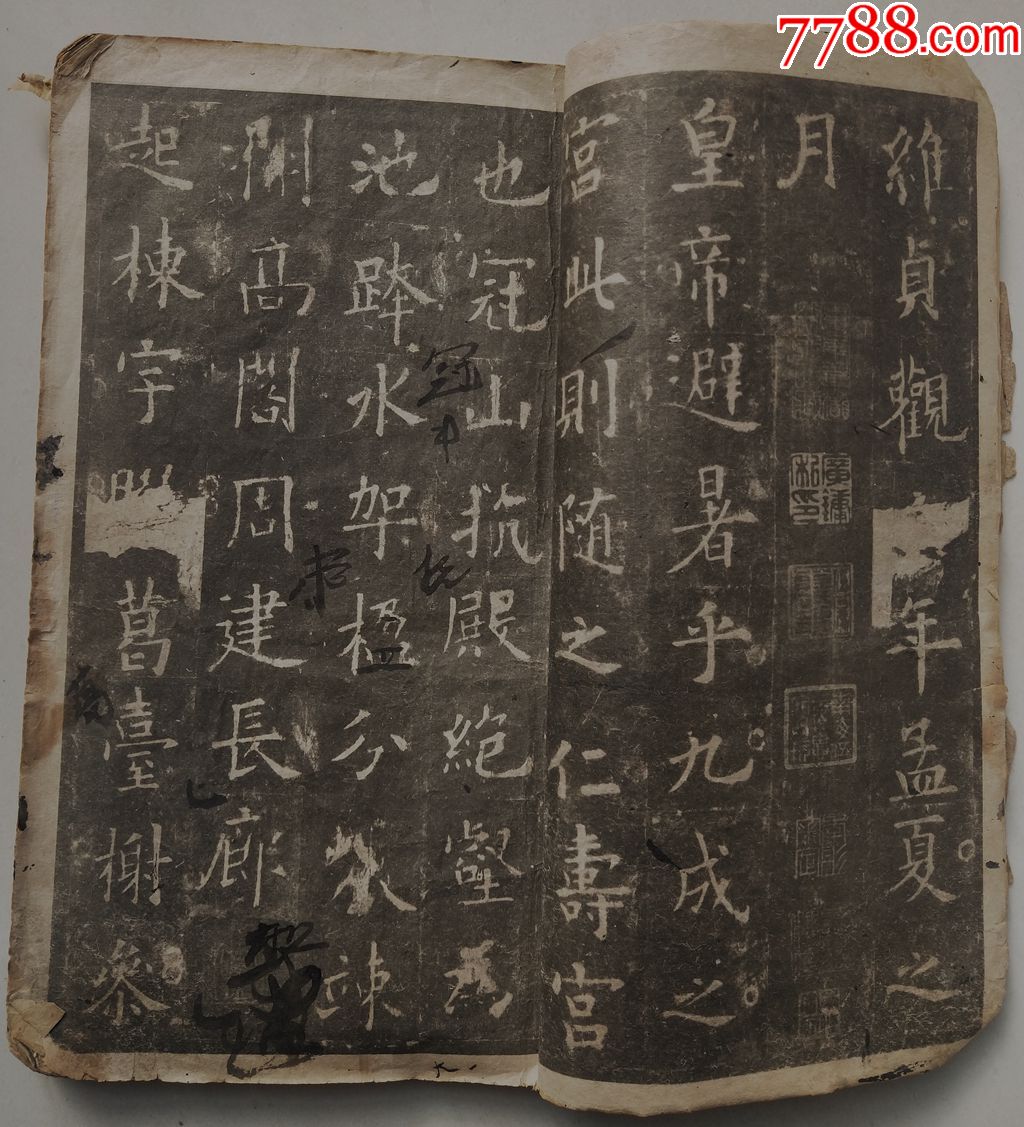 7788.com
維貞觀年孟夏之
月
皇帝避暑乎九成之
宮此則随之仁壽宮
也冠山抗殿絕壑為
池跨水架楹分竦
闕高閣周建長廊
起棟宇葛臺榭參